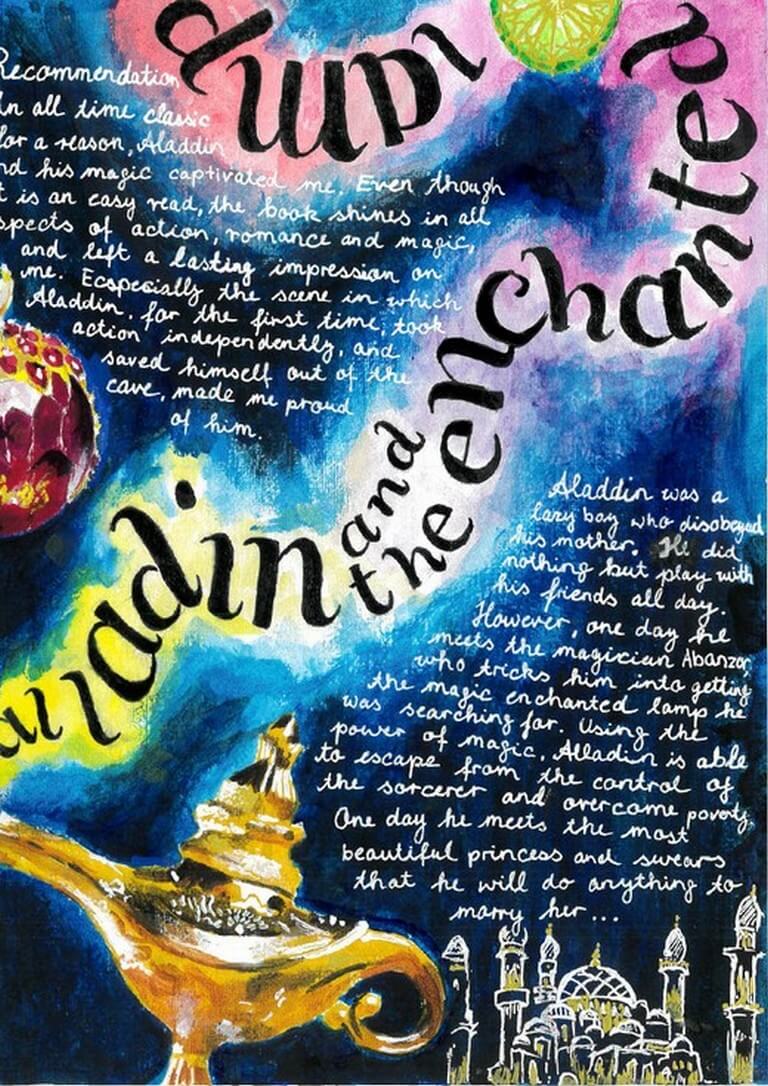 Recommendation
n all time classic
for a reason, Aladdin
nd his magic captivated me. Even though
t is an easy read, the book shines in all
spects of action, romance and magic,
and left a lasting impression on
me. Ecspecially the scene in which
Aladdin, for the first time, took
action independently, and
saved himself out of the
cave, made me proud
of him.
alladin
and
the
enchanted
lamp
Aladdin was a
lazy boy who disobeyed
his mother. He did
nothing but play with
his friends all day.
However, one day he
meets the magician Abanzar,
who tricks him into getting
the magic enchanted lamp he
was searching for. Using the
power of magic, Alladin is able
to escape from the control of
the sorcerer and overcome poverty.
One day he meets the most
beautiful princess and swears
that he will do anything to
marry her...